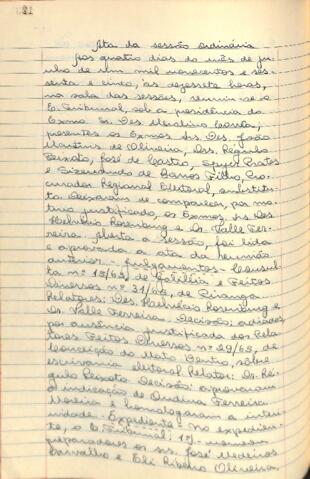 21
Ata da sessão ordinária
Aos quatro dias do mês de ju-
nho de um mil novecentos e ses-
senta e cinco, às dezessete horas,
na sala das sessões, reuniu-se o
E. Tribunal, sob a presidência do
Exmo. Sr. Des. Merolino Corrêa,
presentes os Exmos. Srs. Des. João
Martins de Oliveira, Drs. Régulo
Peixoto, José de Castro, Prates
e Sizenando de Barros Filho, Pro-
curador Regional Eleitoral, substituto.
Deixaram de comparecer, por mo-
tivo justificado, os Exmos. Srs. Des.
Helvécio Rosenburg e Dr. Valle Fer-
reira. Aberta a sessão, foi lida
e aprovada a ata da reunião
anterior. - Julgamentos - Consul-
ta nº 13/65, de Galiléia e Feitos
Diversos nº 31/65, de Piranga
Relatores: Des. Helvécio Rosenburg e
Dr. Valle Ferreira - Decisão: adiados
por ausência justificada dos Rela-
tores Feitos Diversos nº 29/65, de
Conceição do Mato Dentro, sôbre
escrivania eleitoral Relator: Dr. Ré-
gulo Peixoto. Decisão: aprovaram
a indicação de Ondina Ferreira
Moreira e homologaram a interi-
nidade - Expediente - No expedien-
te, o E. Tribunal: 1º) - nomeou
preparadores os srs. José Medeiros
Carvalho e Eli Ribeiro Oliveira,